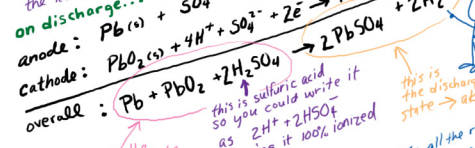 the
on discharge...
anode: Pb(s) + SO4
cathode: PbO2(s) + 4H+ + SO4^2- + 2e-
→ 2PbSO4 + 2H2
overall: Pb + PbO2 + 2H2SO4
this is sulfuric acid
so you could write it
as 2H+ + 2HSO4
it 100% ionized
this is
the discharg
state →
all the r